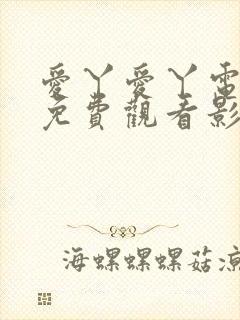 愛丫愛丫電
免費觀看影
海螺螺螺菇涼